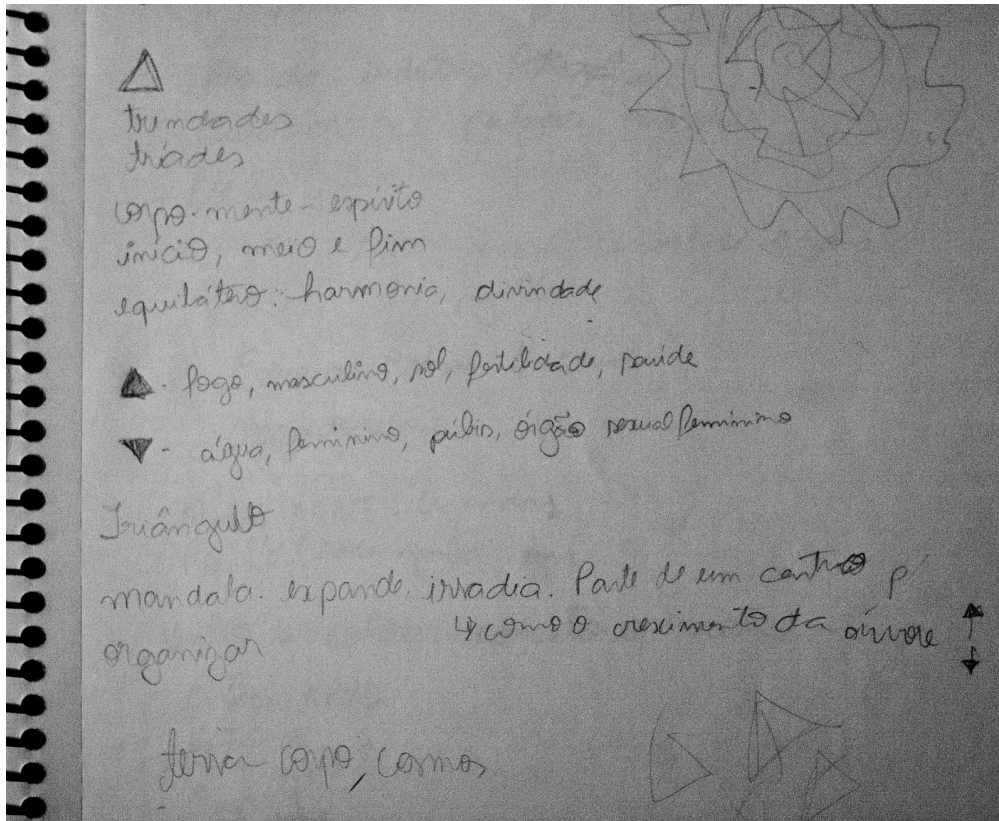 trindades
tríades
corpo-mente-espírito
início, meio e fim
equilátero: harmonia, divindade
- fogo, masculino, sol, fertilidade, saúde
- água, feminino, púbis, órgão sexual feminino
Triângulo
mandala. expande, irradia. Parte de um centro p/
organizar
↳ como o crescimento da árvore
terra corpo, cosmos